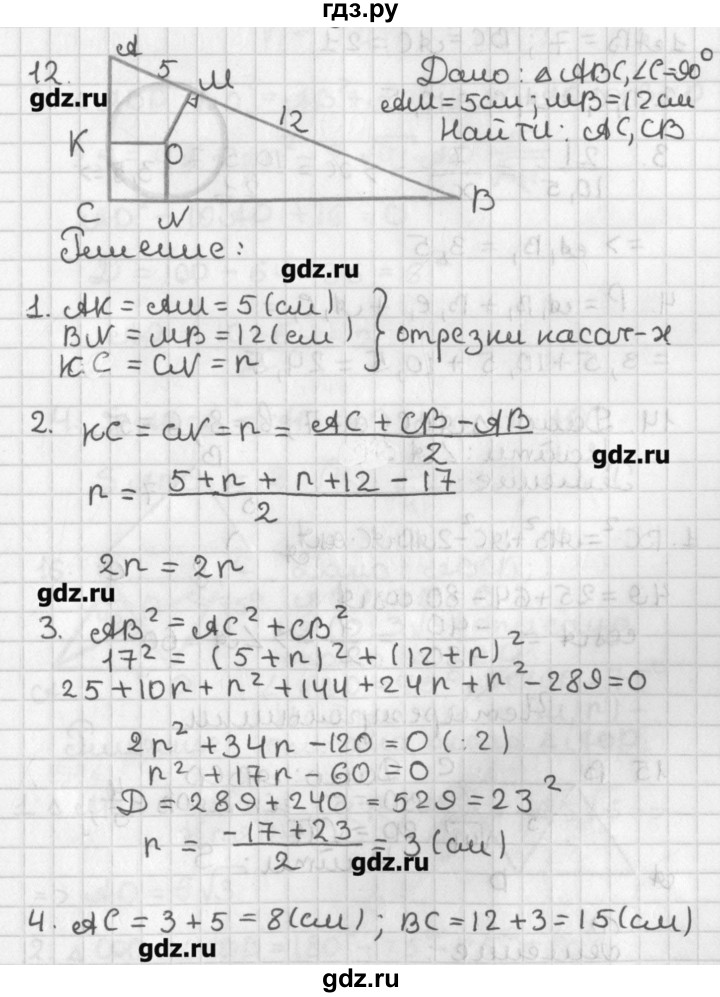 гдз.ру
12.
A
5
M
12
K
O
C
N
B
Дано: △ ABC, ∠C=90°
AM = 5см; MB = 12 см
Найти: AC, CB
гдз.ru
Решение:
гдз.ru
1. AK = AM = 5 (см)
BN = MB = 12 (см)
KC = CN = r
} отрезки касат-х
2. KC = CN = r = (AC + CB - AB)/2
гдз.ru
r = (5 + r + r + 12 - 17)/2
2r = 2r
гдз.ru
3. AB² = AC² + CB²
17² = (5 + r)² + (12 + r)²
25 + 10r + r² + 144 + 24r + r² - 289 = 0
2r² + 34r - 120 = 0 (:2)
r² + 17r - 60 = 0
Д = 289 + 240 = 529 = 23²
r = (-17 + 23)/2 = 3 (см)
гдз.ru
4. AC = 3 + 5 = 8 (см); BC = 12 + 3 = 15 (см)
гдз.ru
гдз.ru